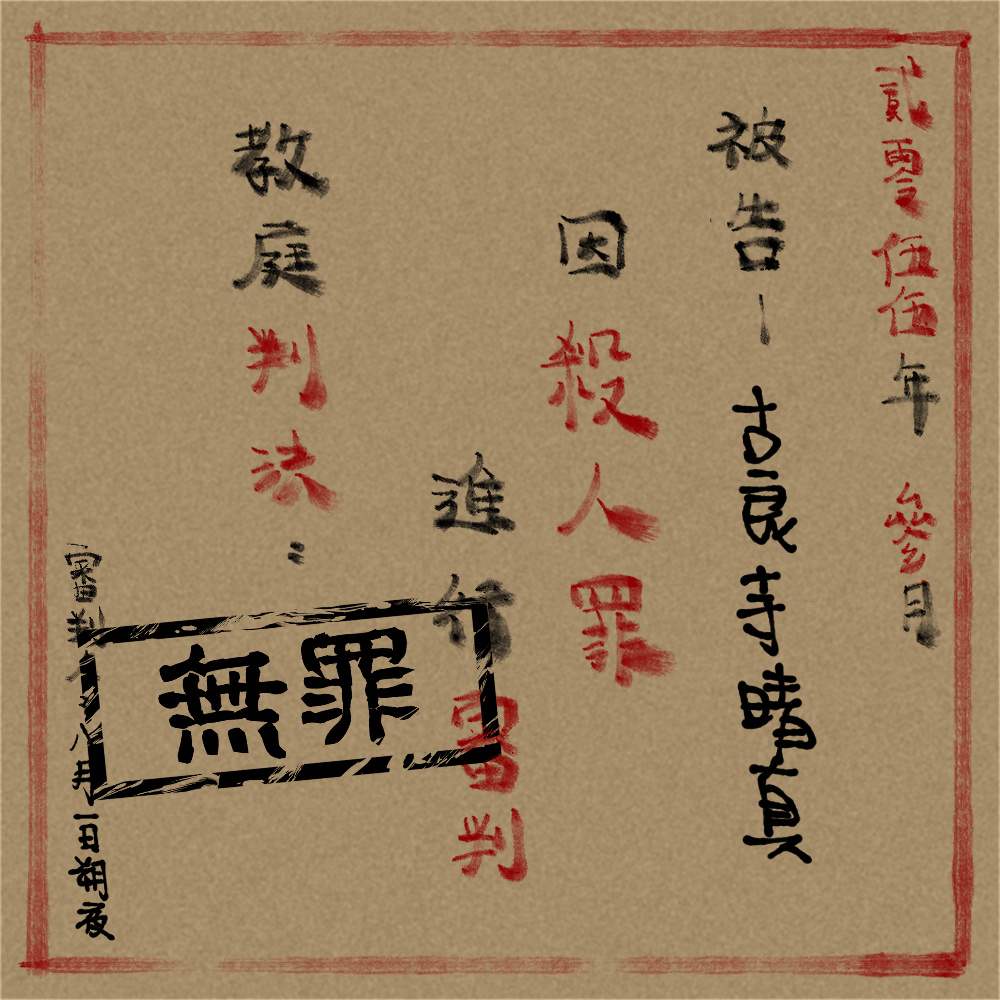 貳零伍伍年 參月
被告— 古良寺晴真
因殺人罪
進行審判
教庭判決：
無罪
審判 八月一日朔夜